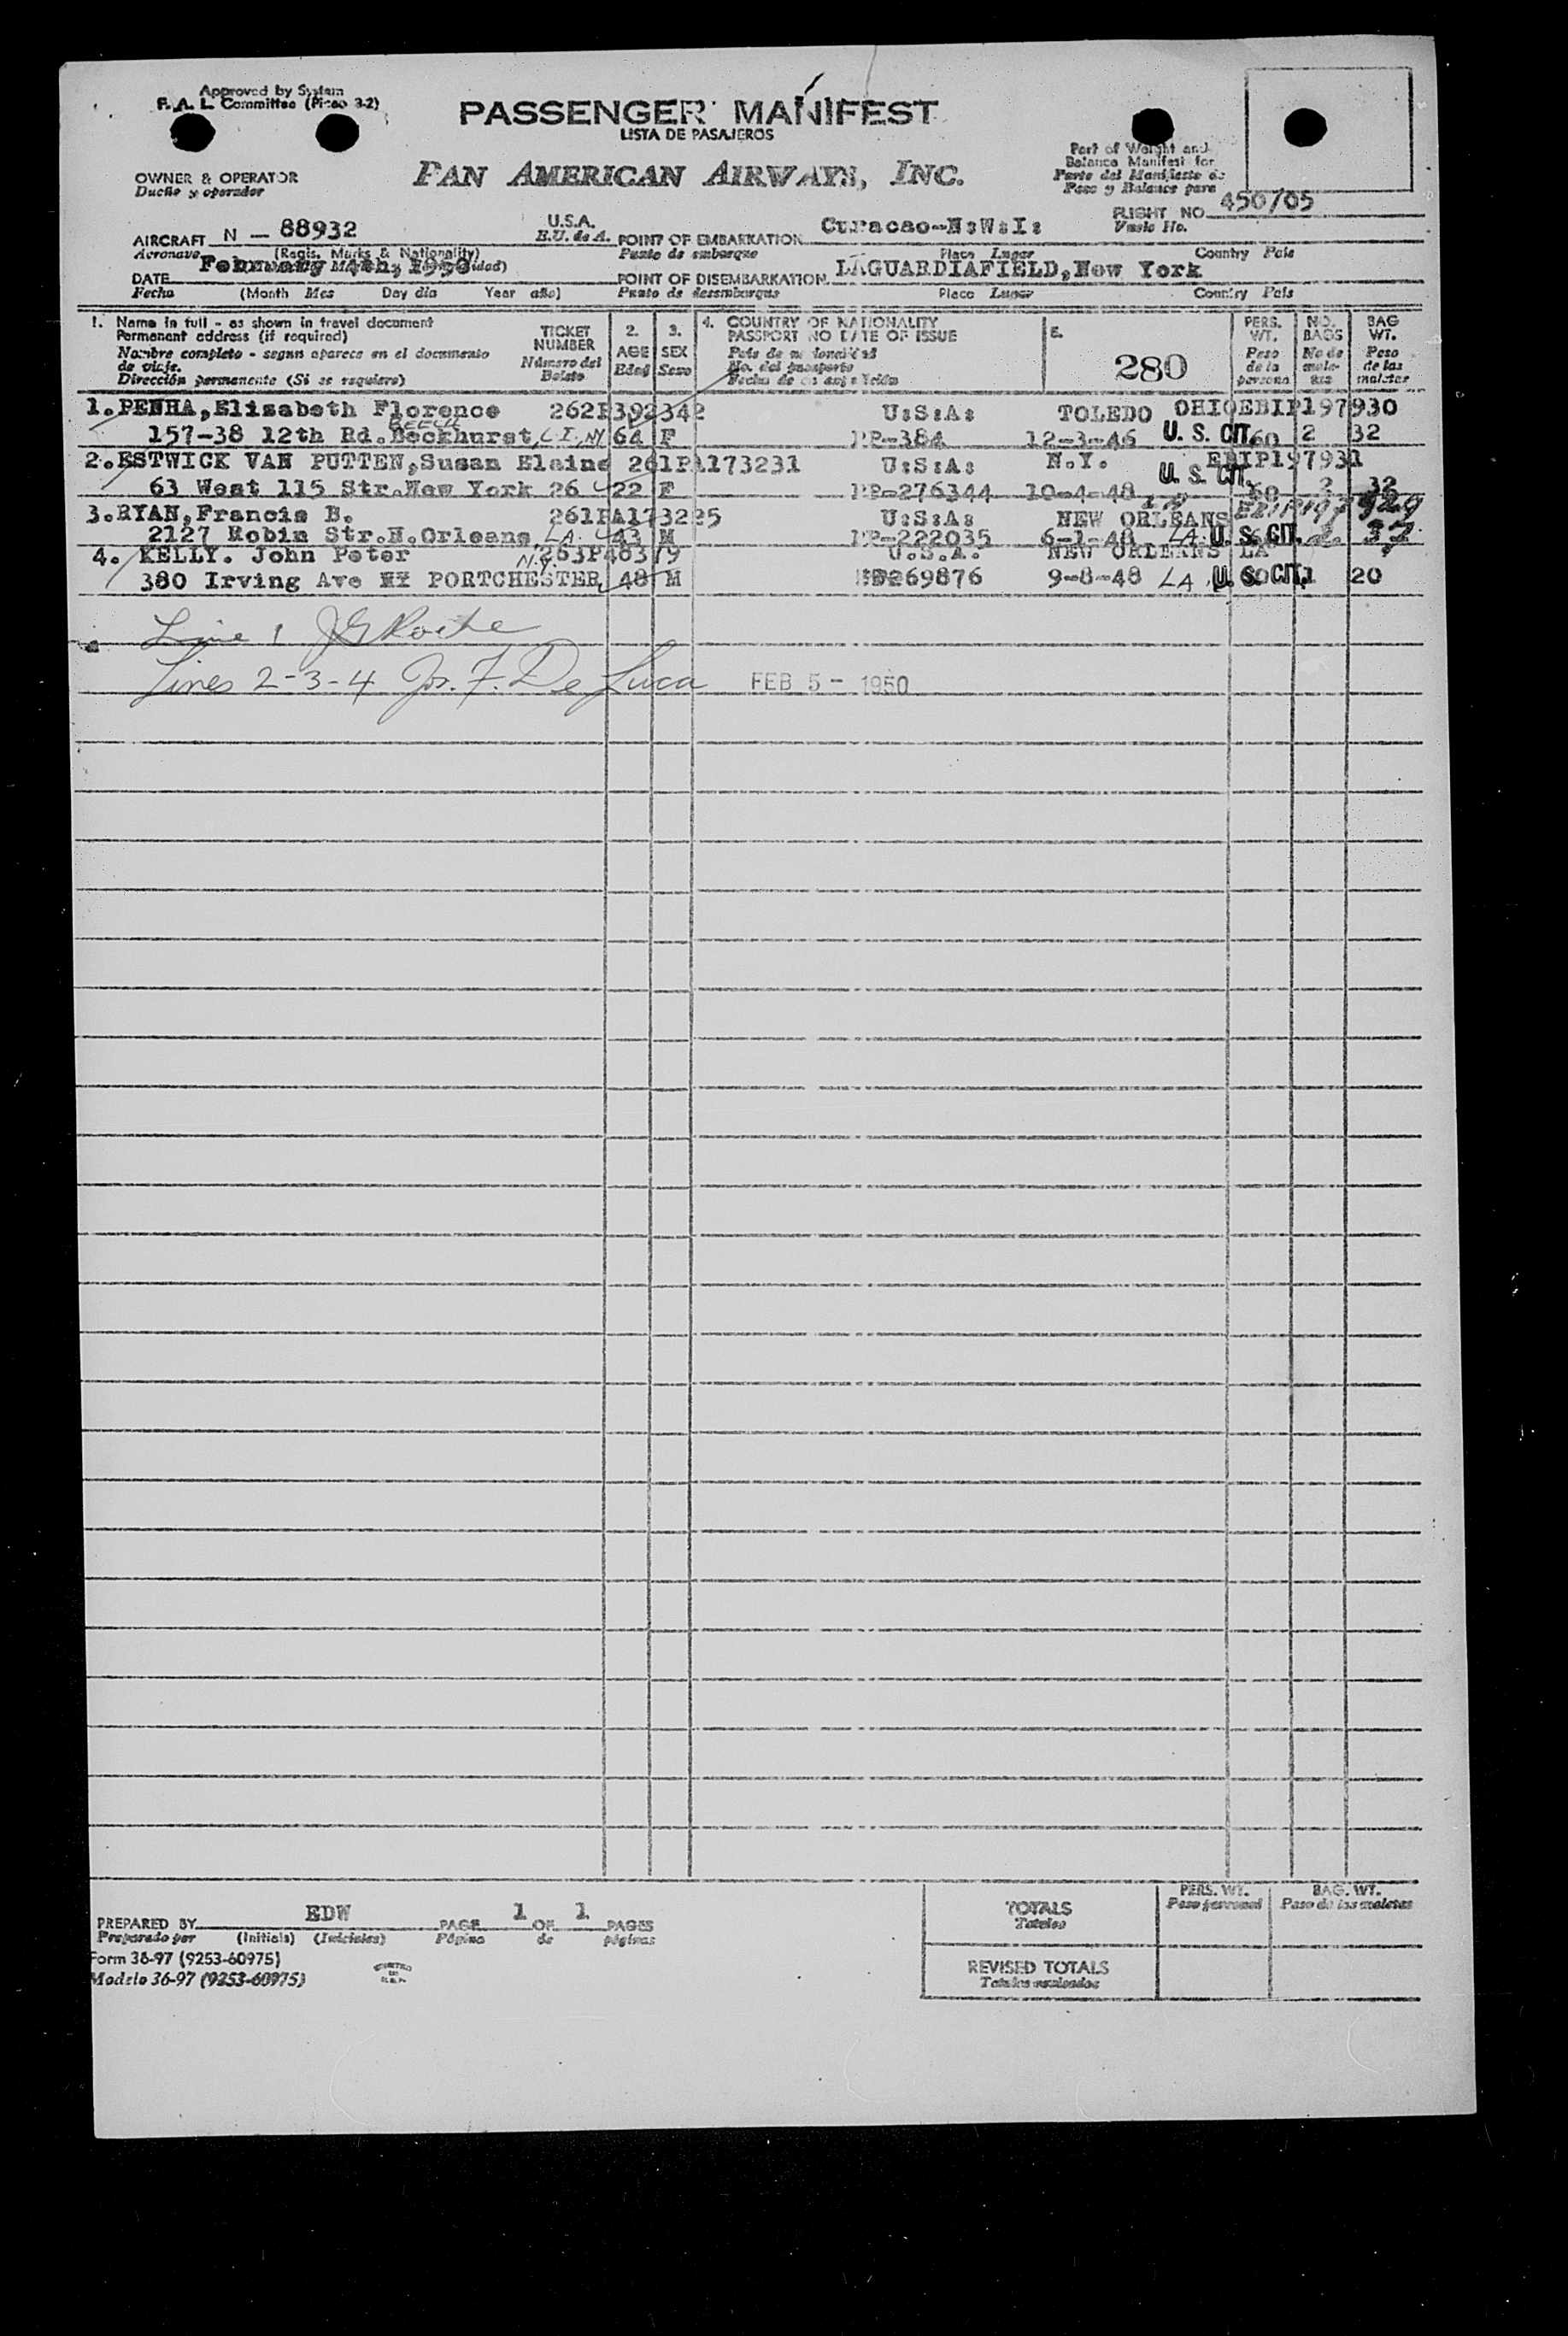 Approved by System
F. A. L. Committee (Picao 3-2)
PASSENGER MANIFEST
LISTA DE PASAJEROS
PAN AMERICAN AIRWAYS, INC.
OWNER & OPERATOR
Dueño y operador
Part of Weight and
Balance Manifest for
Parte del Manifiesto de
Peso y Balance para
FLIGHT NO. 450/05
Vuelo No.
AIRCRAFT N - 88932 U.S.A.
Aeronave (Regis. Marks & Nationality) E.U. de A.
POINT OF EMBARKATION Curacao-N:W:I:
Punto de embarque Place Lugar Country País
DATE February 4th, 1950
Fecha (Month Mes Day día Year año)
POINT OF DISEMBARKATION LAGUARDIAFIELD, New York
Punto de desembarque Place Lugar Country País
1. Name in full - as shown in travel document
Permanent address (if required)
Nombre completo - segun aparece en el documento
de viaje.
Dirección permanente (Si se requiere)
TICKET
NUMBER
Número del
Boleto
2.
AGE
Edad
3.
SEX
Sexo
4. COUNTRY OF NATIONALITY
PASSPORT NO DATE OF ISSUE
País de nacionalidad
No. del pasaporte
Fecha de
280
PERS.
WT.
Peso
de la
persona
NO.
BAGS
No de
male-
tas
BAG
WT.
Peso
de las
maletas
1. PENHA, Elisabeth Florence 262P392342 U:S:A: TOLEDO OHIO EBIP197930
BEECH
157-38 12th Rd. Beckhurst, L.I. NY 64 F PP-384 12-3-46 U. S. CIT. 60 2 32
2. ESTWICK VAN PUTTEN, Susan Elaine 261PA173231 U:S:A: N.Y. EBIP197931
63 West 115 Str. New York 26 22 F PP-276344 10-4-48 U. S. CIT. 60 2 32
3. RYAN, Francis B. 261PA173225 U:S:A: NEW ORLEANS
2127 Robin Str. N. Orleans, LA. 43 M PP-222035 6-1-48 LA. U. S. CIT. 2 37
4. KELLY. John Peter 263P48379 U.S.A. NEW ORLEANS LA
380 Irving Ave PORTCHESTER N.Y. 48 M 269876 9-8-48 LA. U. S. CIT. 1 20
Line 1 JG Roche
Lines 2-3-4 Jos. F. De Luca FEB 5 - 1950
PREPARED BY EDW PAGE 1 OF 1 PAGES
Preparado por (Initials) (Iniciales) Página de páginas
Form 36-97 (9253-60975)
Modelo 36-97 (9253-60975)
PERS. WT.
Peso personal
BAG. WT.
Peso de las maletas
TOTALS
Totales
REVISED TOTALS
Totales